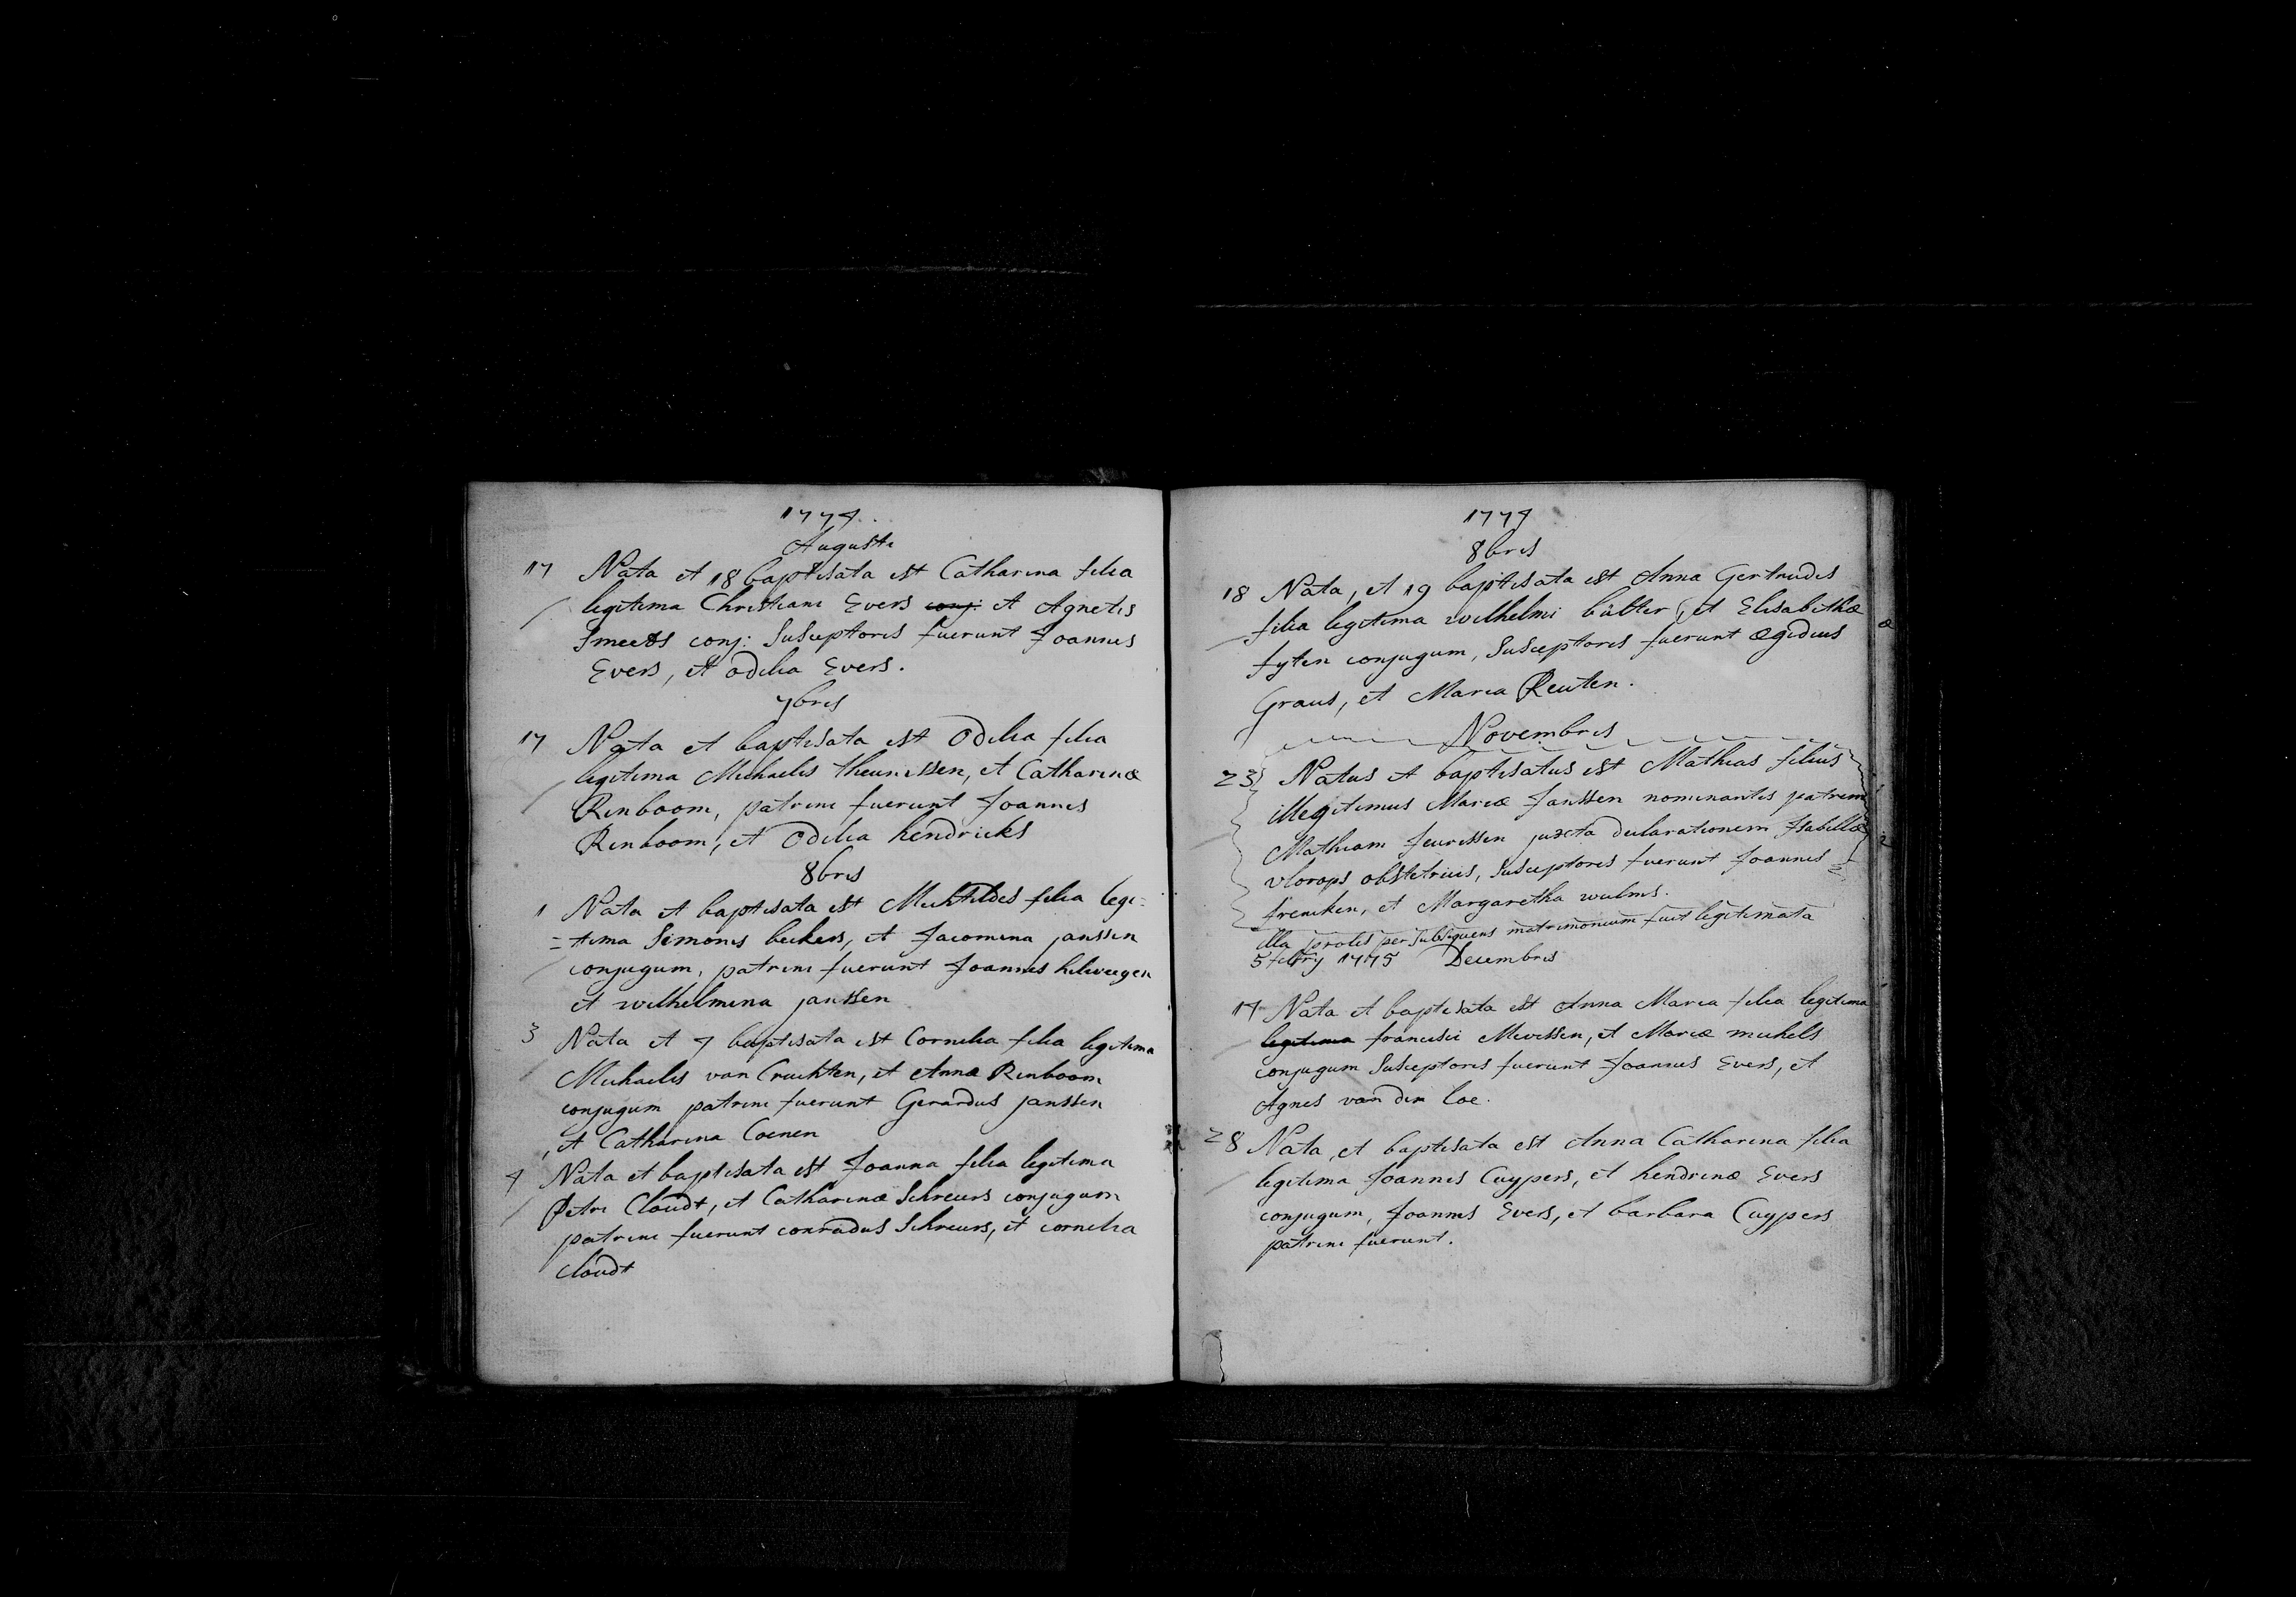 1774.
Augusti
17 Nata et 18 baptisata est Catharina filia
legitima Christiani Evers conj: et Agnetis
Smeets conj: Susceptores fuerunt Joannes
Evers, et Odilia Evers.
7bris
17 Nata et baptisata est Odilia filia
legitima Michaelis theunissen, et Catharinæ
Rinboom, patrini fuerunt Joannes
Rinboom, et Odilia hendricks
8bris
1 Nata et baptisata est Mechtildes filia legi=
=tima Simonis beckers, et Jacomina janssen
conjugum, patrini fuerunt Joannes hilweegen
et wilhelmina janssen
3 Nata et 4 baptisata est Cornelia filia legitima
Michaelis van Cruchten, et Annæ Rinboom
conjugum patrini fuerunt Gerardus janssen
, et Catharina Coenen
4 Nata et baptisata est Joanna filia legitima
Petri Cloudt, et Catharinæ Schreurs conjugum
patrini fuerunt conradus Schreurs, et cornelia
cloudt
1774
8bris
18 Nata, et 19 baptisata est Anna Gertrudis
filia legitima wilhelmi bülter, et Elisabethæ
fyten conjugum, Susceptores fuerunt ægidius
Graus, et Maria Reuten.
Novembris
23 Natus et baptisatus est Mathias filius
illegitimus Mariæ Janssen nominantis patrem
Mathiam Jeurissen juxta declarationem Isabellæ
vlorops obstetricis, Susceptores fuerunt Joannes
frencken, et Margaretha wulms.
illa prolis per Subsequens matrimonium fuit legitimata
5 febry 1775 Decembris
17 Nata et baptisata est Anna Maria filia legitima
legitima francisci Mevissen, et Mariæ michels
conjugum Susceptores fuerunt Joannes Evers, et
Agnes van den Loe.
28 Nata, et baptisata est Anna Catharina filia
legitima Joannis Cuypers, et hendrinæ Evers
conjugum, Joannes Evers, et barbara Cuypers
patrini fuerunt.